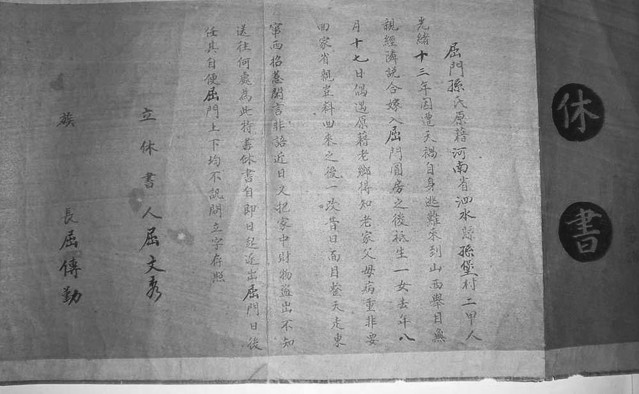 休書
屈門孫氏原籍河南省泗水縣孫堡村二甲人
光緒十三年因遭天禍自身逃難來到山西舉目無
親經濟説合嫁入屈門圓房之後祗生一女去年八
月十七日偶遇原籍老鄉得知老家父母病重非要
回家省親豈料回來之後一改昔日面目整天走東
家閒言非語近日又把家中財物盜出不知
送往何處為此特書休書自即日起逐出屈門日後
任其自便屈門上下均不説閒立字存照
立休書人屈文秀
族長屈傳勤